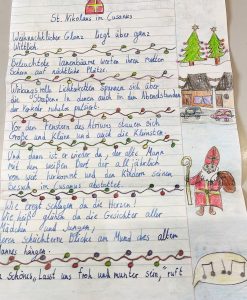 St. Nikolaus im Cusanus
Weihnachtlicher Glanz liegt über ganz
Wittlich.
Beleuchtete Tannenbäume warten ihren matten
Schein auf nächtliche Plätze.
Wirkungsvolle Lichterketten spannen sich über
die Straßen, in denen auch in den Abendstunden
der Verkehr ruhelos pulsiert.
Vor den Fenstern des Atriums stauen sich
Große und Kleine und auch die Kleinsten.
Und dann ist er wieder da, der alte Mann
mit dem weißen Bart, der alljährlich
von weit herkommt und den Kindern seinen
Besuch im Cusanus abstattet.
Wie erregt schlagen da die Herzen!
Wie heiß glühen da die Gesichter aller
Mädchen und Jungen,
deren schüchterne Blicke am Mund des alten
Mannes hängen.
Schönes, "Lasst uns froh und munter sein," ruft